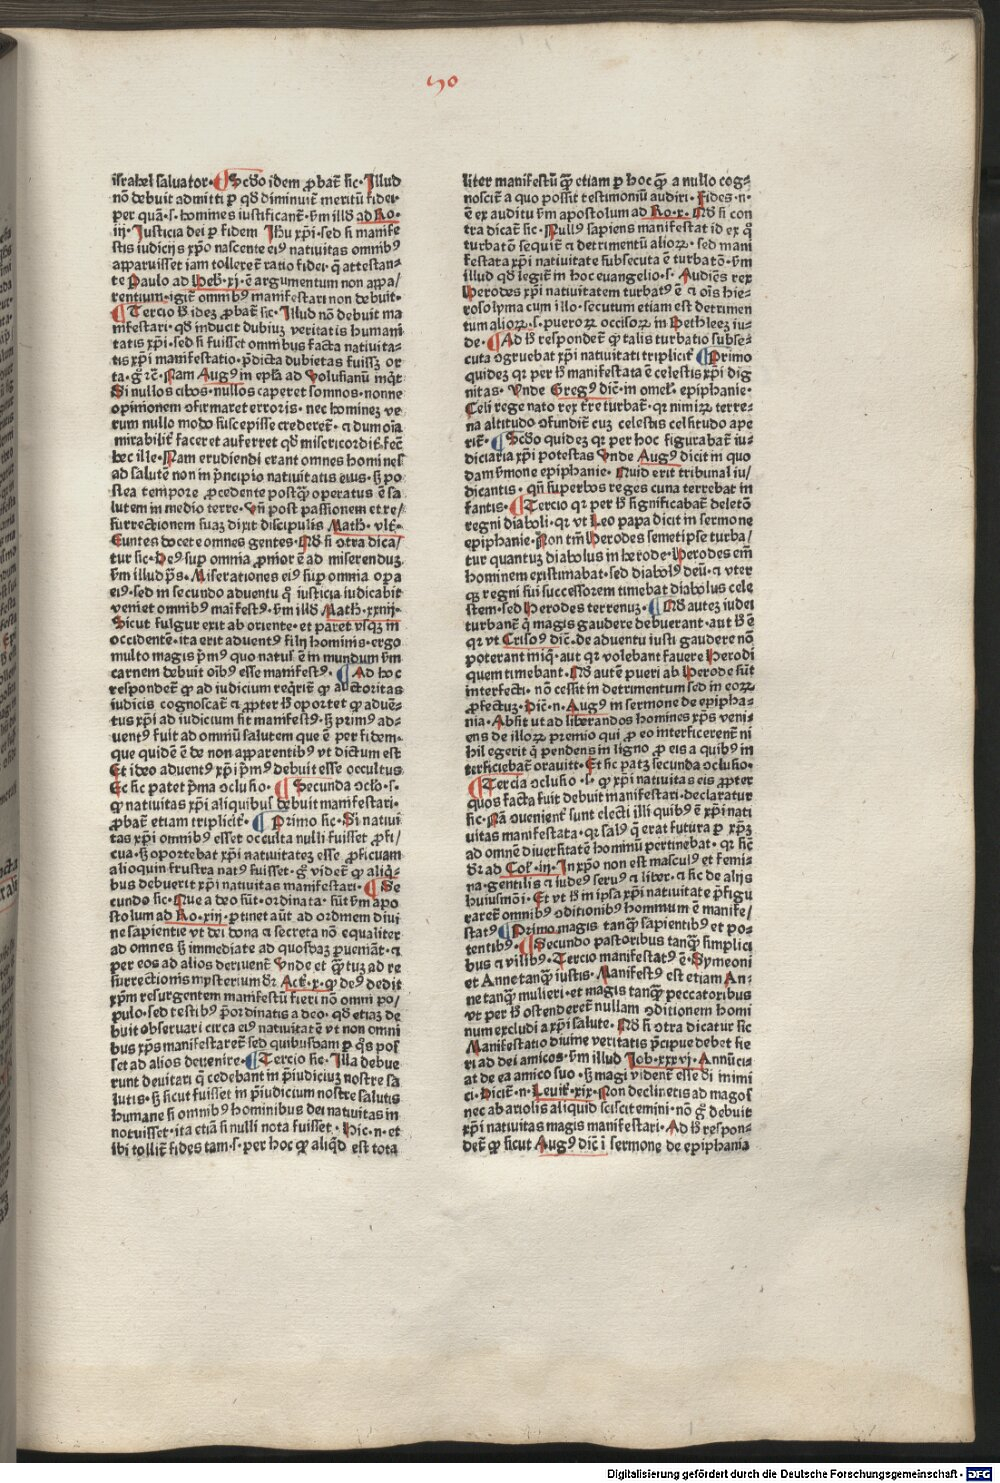 50
israhel saluator. Scďo idem ꝓbat̃ sic. Illud
nō debuit admitti ꝑ qď diminuit̃ meritū fidei.
per quā.s. homines iustificant̃. ẜm illď ad Ro.
iij. Iusticia dei ꝑ fidem Ihu xp̄i. sed si manife
stis iudicijs xp̄o nascente eiꝰ natiuitas omnibꝰ
apparuisset iam tolleret̃ ratio fidei. q̄ attestan-
te Paulo ad Heb̃. xj. ē argumentum non appa/
rentium. igit̃ omnibꝰ manifestari non debuit.
Tercio ꝑ idez ꝓbat̃ sic. Illud nō debuit ma
nifestari. qď inducit dubiuz veritatis humani
tatis xp̄i. sed si fuisset omnibus facta natiuita-
tis xp̄i manifestatio. p̄dicta dubietas fuissz or
ta. g̊ rc̄. Nam Augꝰ in epl̃a ad Volusianū inq̇t
Si nullos cibos. nullos caperet somnos. nonne
opinionem ꝯfirmaret erroris. nec hominez ve
rum nullo modo suscepisse crederet̃. ⁊ dum oīa
mirabilit̃ faceret auferret qď misericordit̃ fec̄
hec ille. Nam erudiendi erant omnes homines
ad salutē non in p̄ncipio natiuitatis eius. sꝫ po
stea tempore ꝓcedente postq̄ꝫ operatus ē sa
lutem in medio terre. Vn̄ post passionem et re/
surrectionem suaz dixit discipulis Math̃. vlt̃.
Euntes docete omnes gentes. Nď si ꝯtra dica/
tur sic. Deꝰ suꝑ omnia ꝓnior ē ad miserenduz
ẜm illud p̄s. Miserationes eiꝰ suꝑ omnia oꝑa
eiꝰ. sed in secundo aduentu q̄ iusticia iudicabit
veniet omnibꝰ maīfestꝰ. ẜm illď Math̃. xxiiij.
Sicut fulgur exit ab oriente. et paret vsqꝫ in
occidentē. ita erit aduentꝰ filij hominis. ergo
multo magis p̄mꝰ quo natus ē in mundum ẜm
carnem debuit oībꝰ esse manifestꝰ. Ad hoc
respondet̃ ꝙ ad iudicium req̇rit̃ ꝙ auctoritas
iudicis cognoscat̃ ⁊ ꝓpter hꝫ oportet ꝙ aduē-
tus xp̄i ad iudicium sit manifestꝰ. sꝫ primꝰ ad-
uentꝰ fuit ad omniū salutem que ē per fidem.
que quidē ē de non apparentibꝰ vt dictum est
Et ideo aduentꝰ xp̄i p̄mꝰ debuit esse occultus
Et sic patet p̄ma ꝯclusio. Secunda ꝯclō.s.
ꝙ natiuitas xp̄i aliquibus debuit manifestari.
ꝓbat̃ etiam triplicit̃. Primo sic. Si natiui
tas xp̄i omnibꝰ esset occulta nulli fuisset ꝓfi/
cua. sꝫ oportebat xp̄i natiuitatez esse ꝓficuam
alioquin frustra natꝰ fuisset. g̊ videt̃ ꝙ aliq̇-
bus debuerit xp̄i natiuitas manifestari. Se
cundo sic. Que a deo sūt. ordinata. sūt ẜm apo
stolum ad Ro. xiij. ꝑtinet aūt ad ordinem diui
ne sapientie vt dei dona ⁊ secreta nō equaliter
ad omnes sꝫ immediate ad quosdaꝫ ꝑueniāt. ⁊
per eos ad alios deriuent̃ Vnde et q̄ꝫtuz ad re
surrectionis mysterium dr̄ Act̃. x. ꝙ deꝰ dedit
xp̄m resurgentem manifestū fieri nō omni po/
pulo. sed testibꝰ p̄ordinatis a deo. qď etiaz de
buit obseruari circa eiꝰ natiuitatē vt non omni
bus xp̄s manifestaret̃ sed quibusdam ꝑ q̊s pos
set ad alios deuenire. Tercio sic. Illa debue
runt deuitari q̄ cedebant in p̄iudiciuz nostre sa
lutis. sꝫ sicut fuisset in p̄iudicium nostre salutis
humane si omnibꝰ hominibus dei natiuitas in
notuisset. ita etiā si nulli nota fuisset. Hic.n. et
ibi tollit̃ fides tam.s. per hoc ꝙ aliq̇d est tota
liter manifestū q̄ꝫ etiam ꝑ hoc ꝙ a nullo cog-
noscit̃ a quo possit testimoniū audiri. Fides.n.
ē ex auditu ẜm apostolum ad Ro. x. Nď si con
tra dicat̃ sic. Nullꝰ sapiens manifestat id ex q̊
turbatō sequit̃ ⁊ detrimentū alioꝝ. sed mani
festata xp̄i natiuitate subsecuta ē turbatō. ẜm
illud qď legit̃ in hoc euangelio.s. Audiēs rex
Herodes xp̄i natiuitatem turbatꝰ ē ⁊ oīs hie-
rosolyma cum illo. secutum etiam est detrimen
tum alioꝝ.s. pueroꝝ occisoꝝ in Bethleez iu-
de. Ad hꝫ respondet̃ ꝙ talis turbatio subse-
cuta ꝯgruebat xp̄i natiuitati triplicit̃ Primo
quidez qꝛ per hꝫ manifestata ē celestis xp̄i dig
nitas. Vnde Gregꝰ dic̄. in omel̃. epiphanie.
Celi rege nato rex t̃re turbat̃. qꝛ nimiꝝ terre-
na altitudo ꝯfundit̃ cuz celestis celsitudo ape
rit̃. Scďo quidez qꝛ per hoc figurabat̃ iu-
diciaria xp̄i potestas Vnde Augꝰ dicit in quo
dam ẜmone epiphanie. Quid erit tribunal iu/
dicantis. qn̄ superbos reges cuna terrebat in
fantis. Tercio qꝛ per hꝫ significabat̃ deletō
regni diaboli. qꝛ vt Leo papa dicit in sermone
epiphanie. Non tm̄ Herodes semetipse turba/
tur quantuz diabolus in herode. Herodes em̄
hominem existimabat. sed diabolꝰ deū. ⁊ vter
qꝫ regni sui successorem timebat diabolus cele
stem. sed Herodes terrenuz. Nď autez iudei
turbant̃ q̄ magis gaudere debuerant. aut hꝫ ē
qꝛ vt Crisoꝰ dic̄. de aduentu iusti gaudere nō
poterant iniq̇. aut qꝛ volebant fauere Herodi
quem timebant. Nď autē pueri ab Herode sūt
interfecti. nō cessit in detrimentum sed in eoꝝ
ꝓfectuz. Dic̄.n. Augꝰ in sermone de epipha-
nia. Absit ut ad liberandos homines xp̄s veni-
ens de illoꝝ premio qui ꝓ eo interficerent̃ ni
hil egerit q̇ pendens in ligno ꝓ eis a quibꝰ in
terficiebat̃ orauit. Et sic patz secunda ꝯclusio.
Tercia ꝯclusio.s. ꝙ xp̄i natiuitas eis ꝓpter
quos facta fuit debuit manifestari. declaratur
sic. Nā ꝯuenient̃ sunt electi illi quibꝰ ē xp̄i nati
uitas manifestata. qꝛ salꝰ q̄ erat futura ꝑ xp̄ꝫ
ad omnē diuersitatē hominū pertinebat. qꝛ sic̄
dr̄ ad Col̃. iij. In xp̄o non est masculꝰ et femi-
na. gentilis ⁊ iudeꝰ seruꝰ ⁊ liber. ⁊ sic de alijs
huiusmōi. Et vt hꝫ in ipsa xp̄i natiuitate p̄figu
raret̃ omnibꝰ ꝯditionibꝰ hominum ē manife/
statꝰ Primo magis tanq̄ꝫ sapientibꝰ et po-
tentibꝰ. Secundo pastoribus tanq̄ꝫ simplici
bus ⁊ vilibꝰ. Tercio manifestatꝰ ē. Symeoni
et Anne tanq̄ꝫ iustis. Manifestꝰ est etiam An-
ne tanq̄ꝫ mulieri. et magis tanq̄ꝫ peccatoribus
vt per hꝫ ostenderet̃ nullam ꝯditionem homi
num excludi a xp̄i salute. Nď si ꝯtra dicatur sic
Manifestatio diuine veritatis p̄cipue debet fie
ri ad dei amicos. ẜm illud Iob. xxxvj. Annūci-
at de ea amico suo. sꝫ magi vident̃ esse di inimi
ci. Dicit̃.n. Leuit̃. xix. Non declinetis ad magos
nec ab ariolis aliquid sciscitemini. nō g̊ debuit
xp̄i natiuitas magis manifestari. Ad hꝫ respon-
det̃ ꝙ sicut Augꝰ dic̄ ī sermone de epiphania
Digitalisierung gefördert durch die Deutsche Forschungsgemeinschaft - DFG